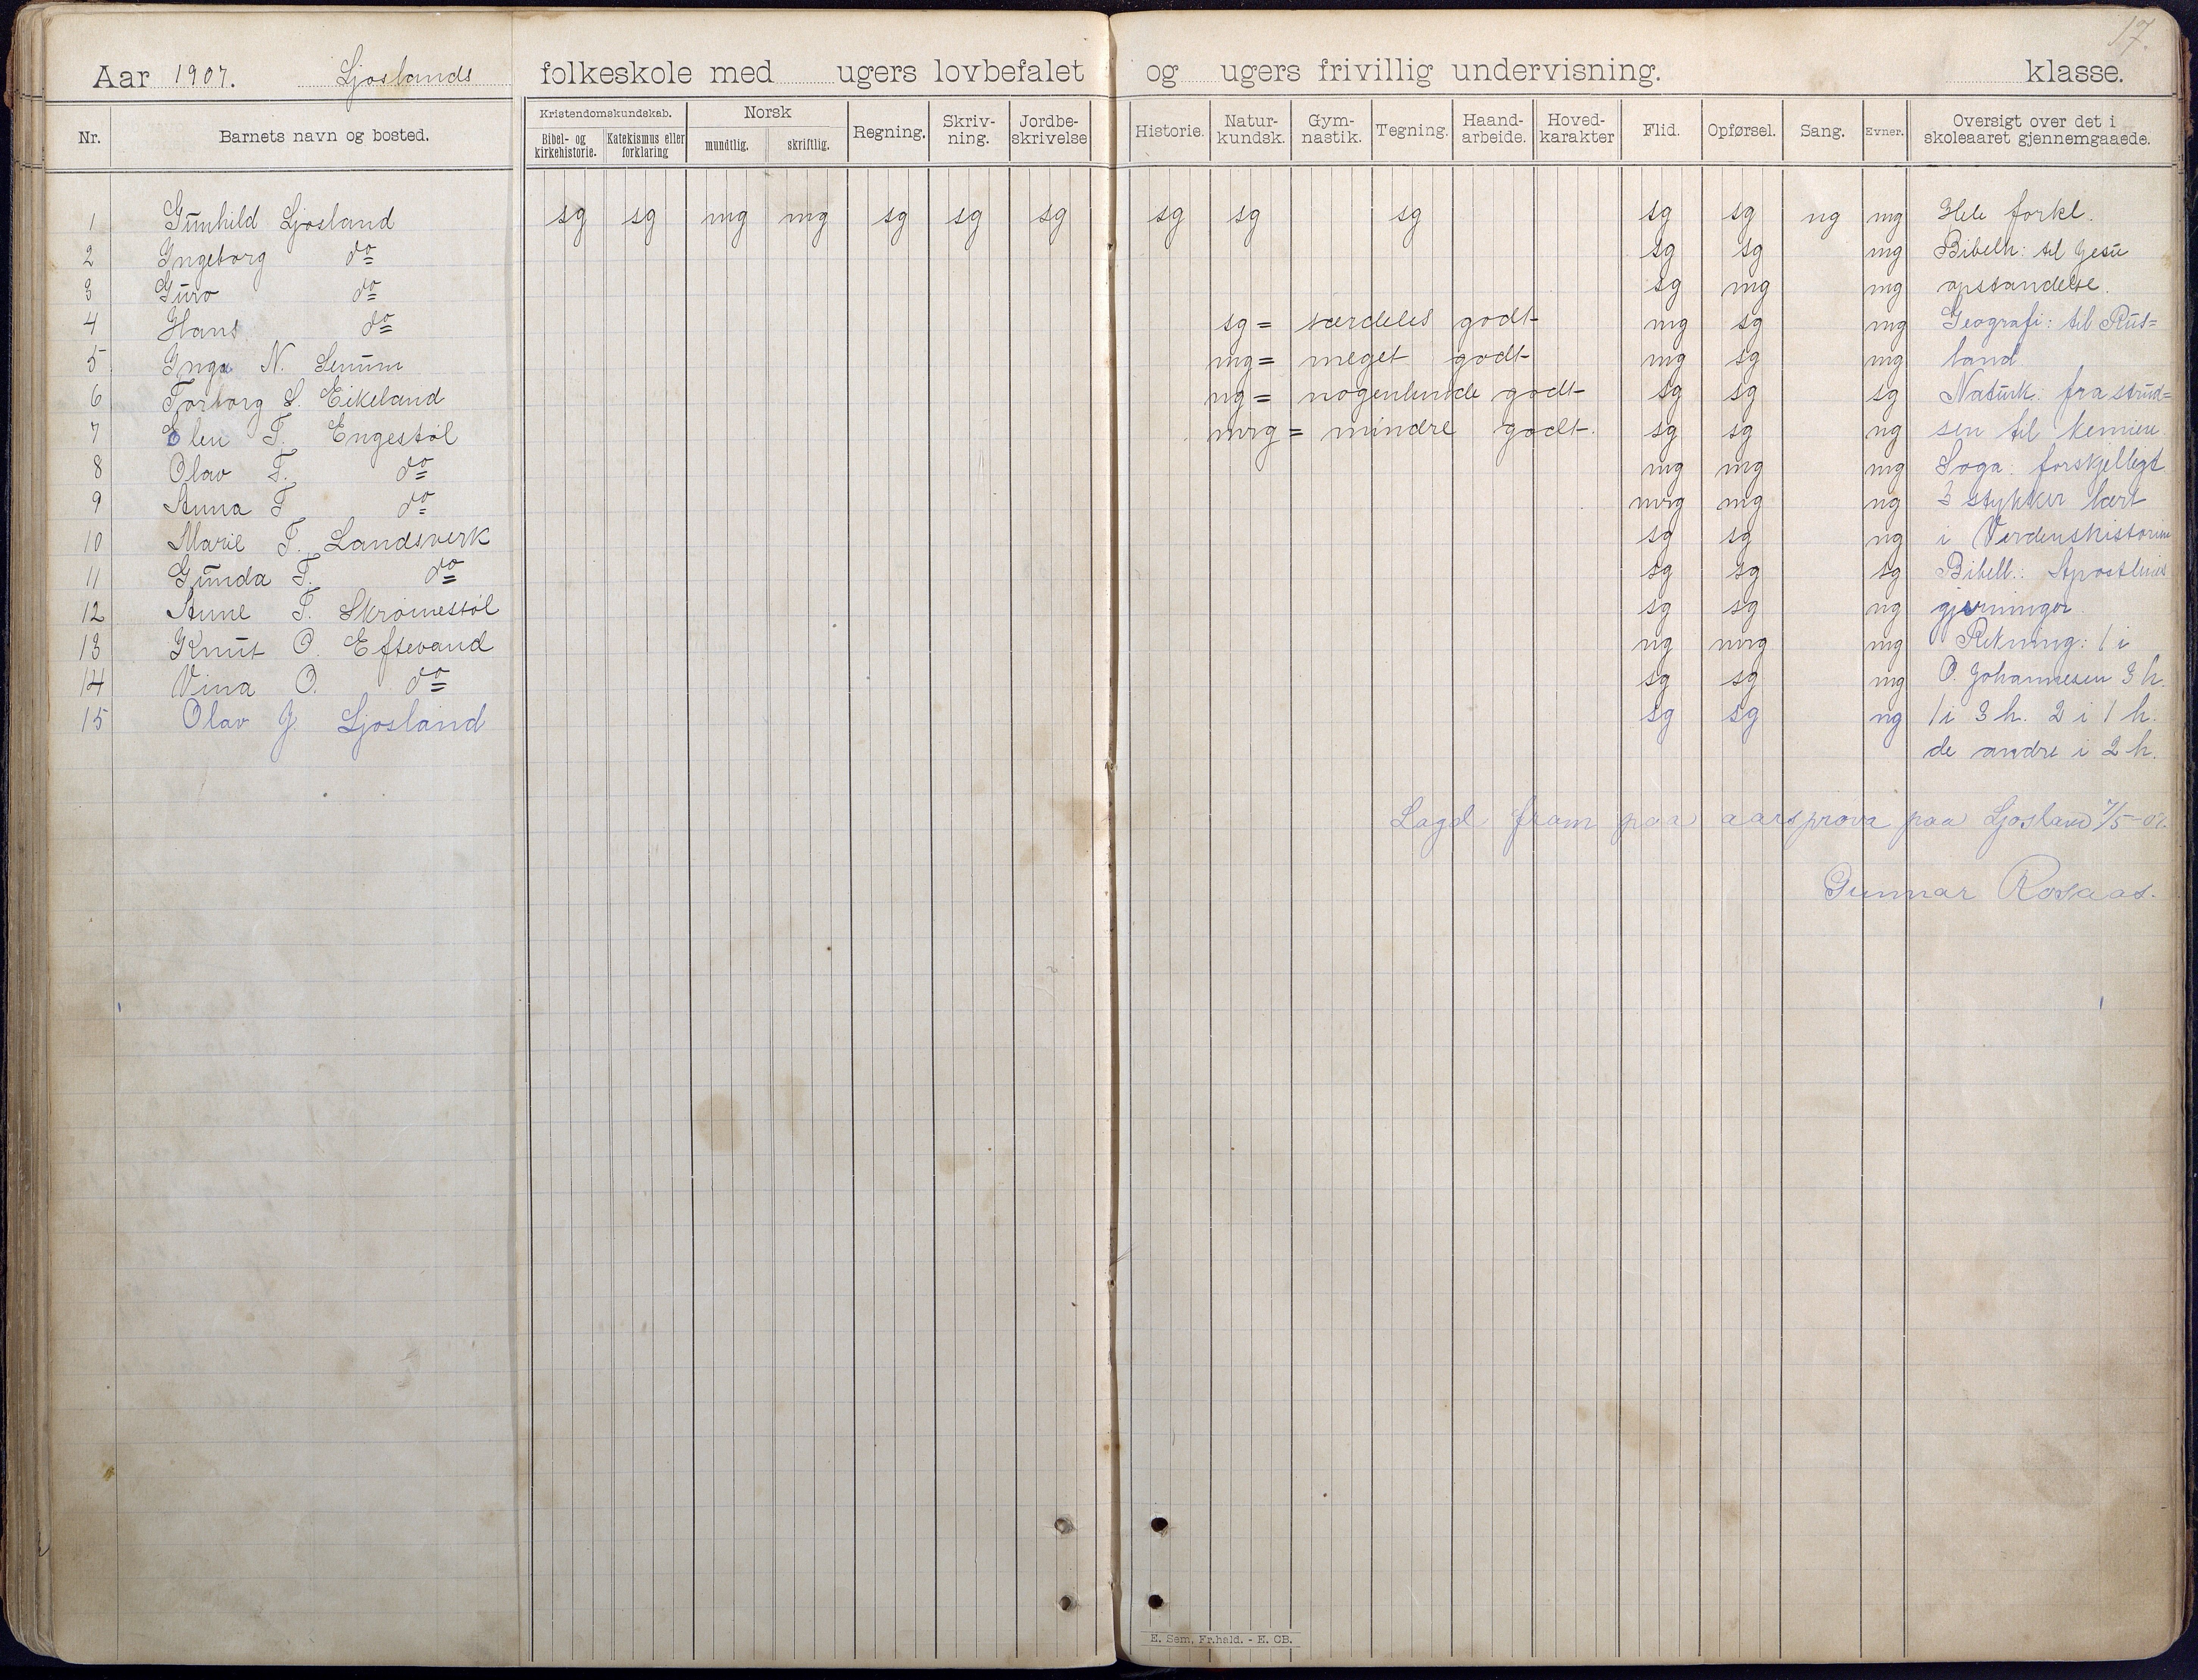 17.
Aar 1907. Ljoslands folkeskole med ugers lovbefalet og ugers frivillig undervisning. klasse.
Nr. Barnets navn og bosted. Kristendomskundskab. Bibel- og kirkehistorie. Katekismus eller forklaring Norsk mundtlig. skriftlig. Regning. Skriv-ning. Jordbe-skrivelse Historie. Natur-kundsk. Gym-nastik. Tegning. Haand-arbeide. Hoved-karakter Flid. Opførsel. Sang. Evner. Oversigt over det i skoleaaret gjennemgaaede.
1 Gunhild Ljosland sg sg mg mg sg sg sg sg sg sg sg sg ng mg Hele forkl.
2 Ingeborg do sg sg mg Bibelh: til Jesu
3 Guro do sg mg mg opstandelse.
4 Hans do sg = særdeles godt mg sg mg Geografi: til Rus=
5 Inga N. Senum mg = meget godt mg sg mg land
6 Torborg S. Eikeland ng = nogenlunde godt sg sg sg Naturk. fra strud=
7 Elen T. Engestøl mrg = mindre godt. sg sg ng sen til
8 Olav T. do mg mg mg Soga: forskjelligt
9 Anna T do mrg mg ng 3 stykker lært
10 Marie T. Landsverk sg sg ng i Verdenshistorien
11 Gunda T. do sg sg sg Bibell.: Apostlenes
12 Anne T. Skrømestøl sg sg ng gjerninger.
13 Knut O. Eftevand ng mrg mg Rekning: 1 i
14 Vina O. do sg sg mg O. Johannesen 3 h.
15 Olav J. Ljosland sg sg ng 1 i 3 h. 2 i 1 h.
de andre i 2 h.
Lagd fram paa aarsprova paa Ljosland 7/5-07.
Gunnar Rosaas.
E. Sem, Fr.hald. - E. CB.